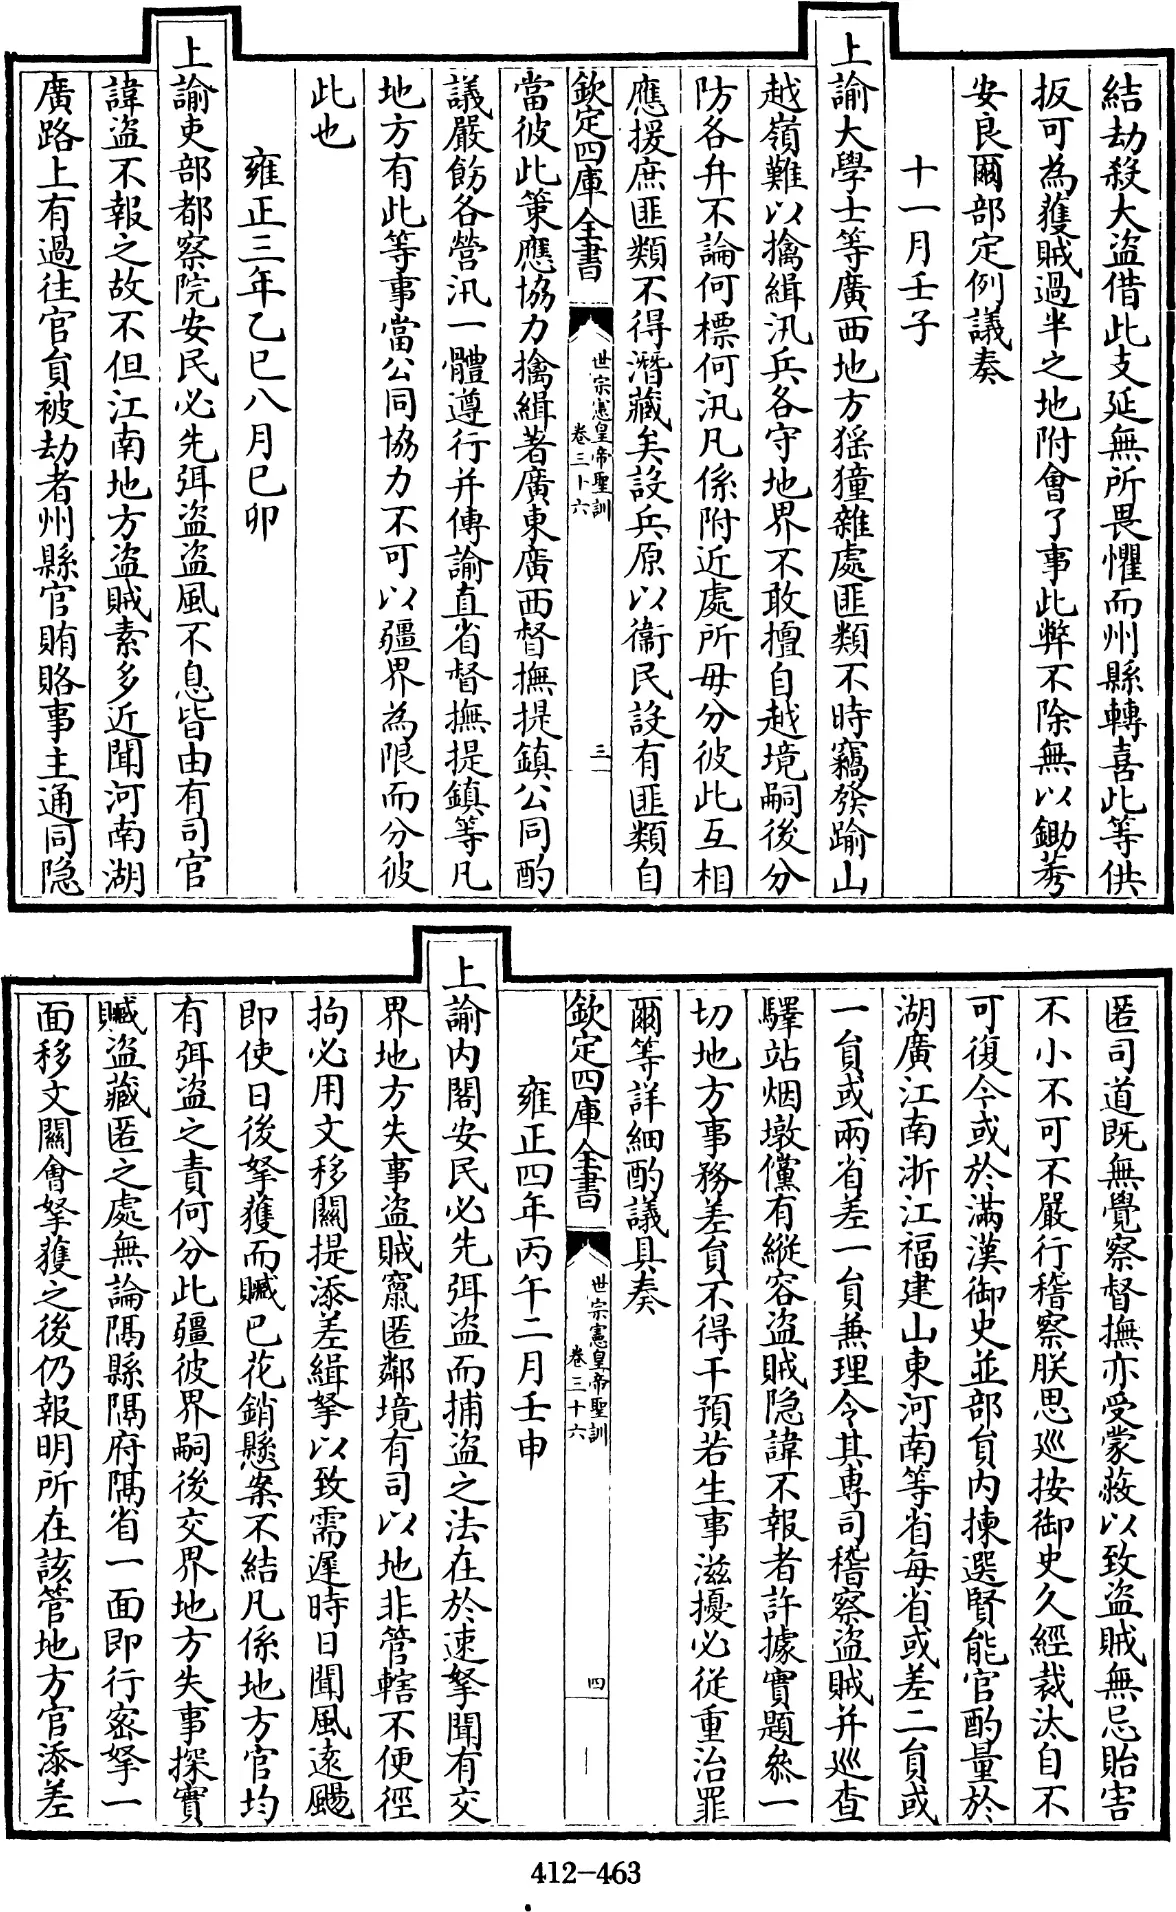 結劫殺大盜借此支延無所畏懼而州縣轉喜此等供
扳可為獲賊過半之地附會了事此弊不除無以鋤莠
安良爾部定例議奏
十一月壬子
上諭大學士等廣西地方猺獞雜處匪類不時竊發踰山
越嶺難以擒緝汛兵各守地界不敢擅自越境嗣後分
防各弁不論何標何汛凡係附近處所毋分彼此互相
應援庶匪類不得潛藏矣設兵原以衞民設有匪類自
欽定四庫全書
世宗憲皇帝聖訓
卷三十六
三
當彼此策應協力擒緝著廣東廣西督撫提鎮公同酌
議嚴飭各營汛一體遵行并傳諭直省督撫提鎮等凡
地方有此等事當公同協力不可以疆界為限而分彼
此也
雍正三年乙巳八月巳卯
上諭吏部都察院安民必先弭盜盜風不息皆由有司官
諱盜不報之故不但江南地方盜賊素多近聞河南湖
廣路上有過往官員被劫者州縣官賄賂事主通同隐
匿司道既無覺察督撫亦受蒙蔽以致盜賊無忌貽害
不小不可不嚴行稽察朕思巡按御史久經裁汰自不
可復今或於滿漢御史並部員內揀選賢能官酌量於
湖廣江南浙江福建山東河南等省每省或差二員或
一員或兩省差一員兼理令其專司稽察盜賊并巡查
驛站烟墩儻有縱容盜賊隐諱不報者許據實題叅一
切地方事務差員不得干預若生事滋擾必從重治罪
爾等詳細酌議具奏
欽定四庫全書
世宗憲皇帝聖訓
卷三十六
四
雍正四年丙午二月壬申
上諭內閣安民必先弭盜而捕盜之法在於速拏聞有交
界地方失事盜賊竄匿鄰境有司以地非管轄不便徑
拘必用文移關提添差緝拏以致需遲時日聞風遠颺
即使日後拏獲而贓巳花銷懸案不結凡係地方官均
有弭盜之責何分此疆彼界嗣後交界地方失事探實
贓盜藏匿之處無論隔縣隔府隔省一面即行密拏一
面移文關會拏獲之後仍報明所在該管地方官添差
412-463